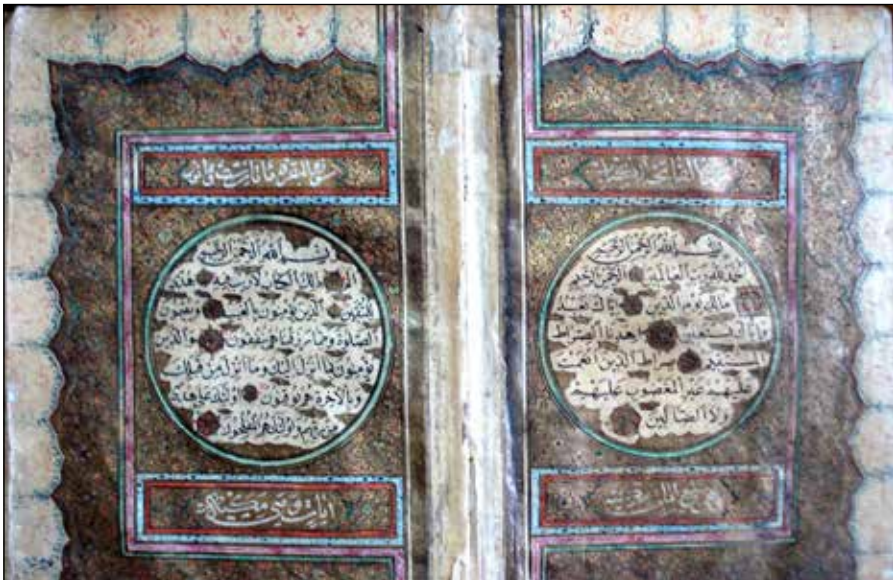 الفاتحة
بسم الله الرحمن الرحيم
الحمد لله رب العالمين الرحمن الرحيم
مالك يوم الدين اياك نعبد
واياك نستعين اهدنا الصراط
المستقيم صراط الذين انعمت
عليهم غير المغضوب عليهم
ولا الضالين
سورة البقرة مايتان وثمانون
بسم الله الرحمن الرحيم
الم ذلك الكتاب لا ريب فيه هدى
للمتقين الذين يؤمنون بالغيب ويقيمون
الصلوة ومما رزقناهم ينفقون والذين
يؤمنون بما انزل اليك وما انزل من قبلك
وبالاخرة هم يوقنون اولئك على هدى
من ربهم واولئك هم المفلحون
ايات وهي مدنية